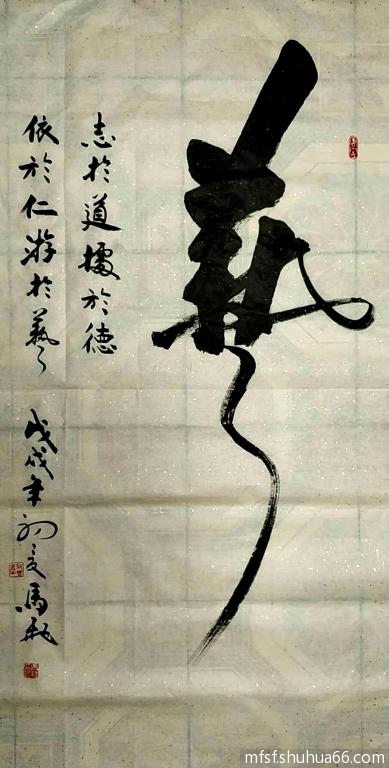 藝
志於道據於德
依於仁游於藝
戊戌年初夏馬
mfsf.shuhua66.com